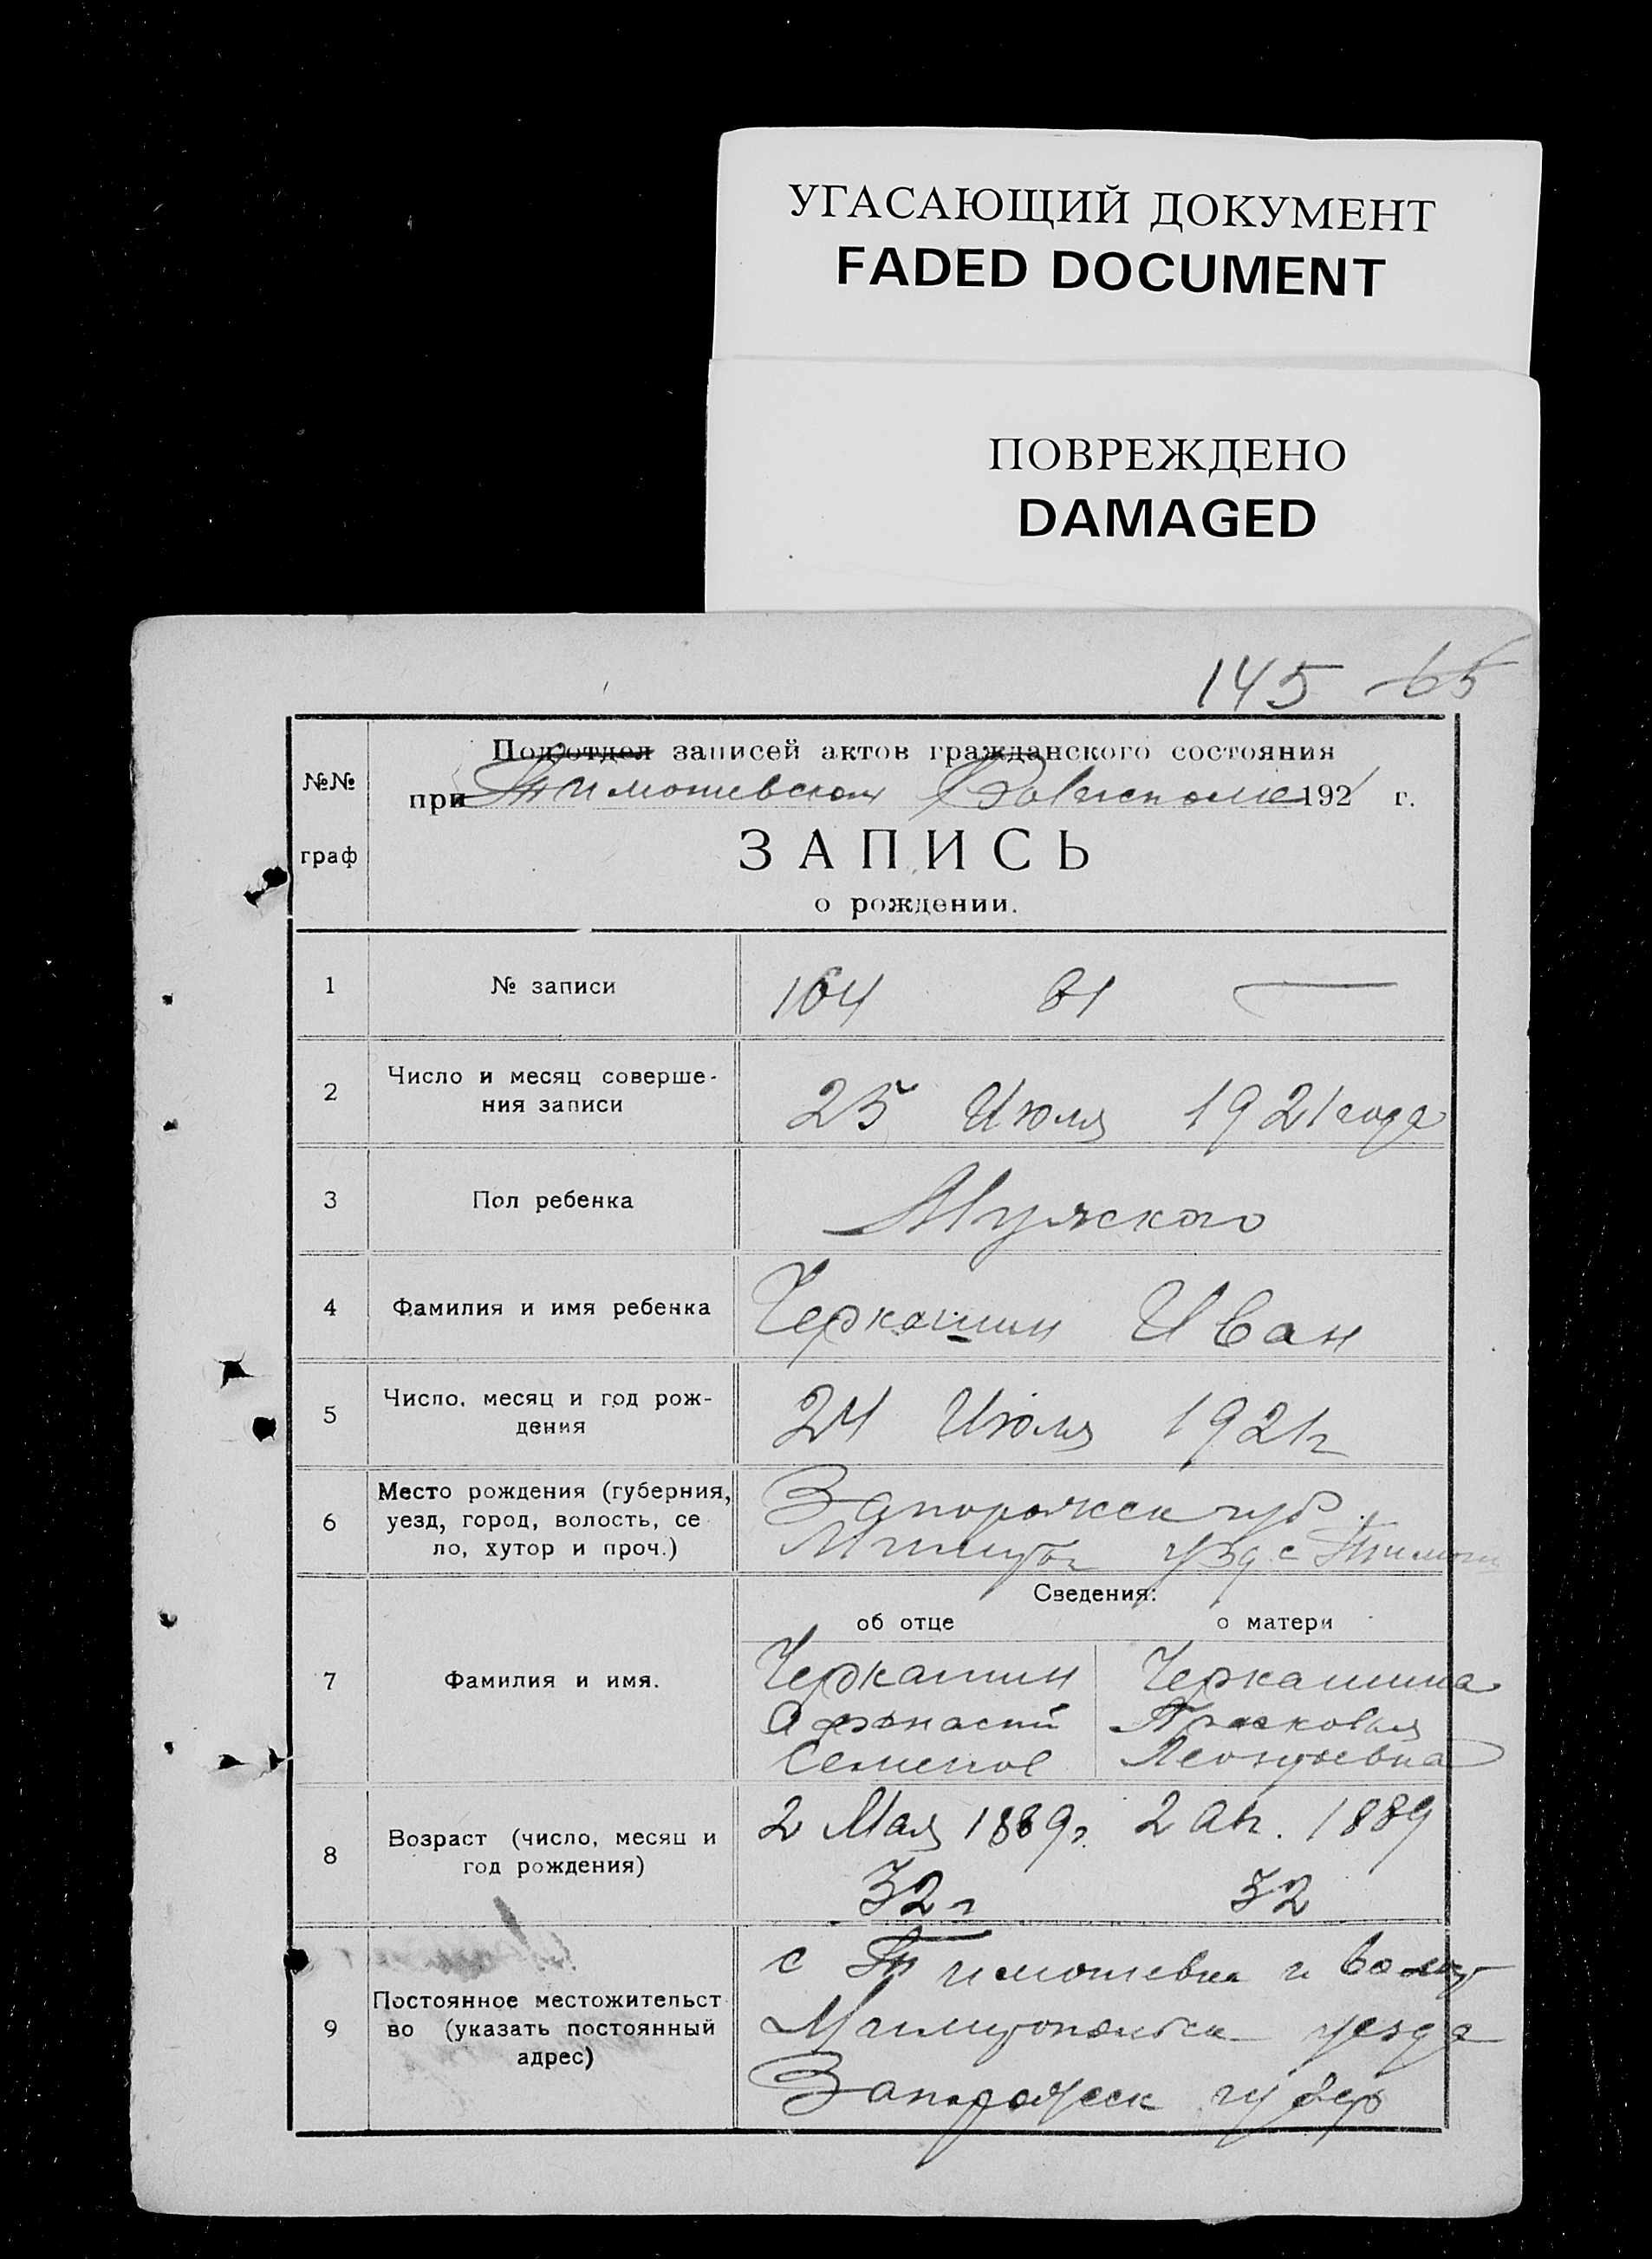 УГАСАЮЩИЙ ДОКУМЕНТ
FADED DOCUMENT
ПОВРЕЖДЕНО
DAMAGED
145 65
№№
граф
Подотдел записей актов гражданского состояния
при Тимошевском Волисполкоме 1921 г.
ЗАПИСЬ
о рождении.
1 № записи 164 61
2 Число и месяц соверше-
ния записи
25 Июля 1921 года
3 Пол ребенка Мужского
4 Фамилия и имя ребенка Черкашин Иван
5 Число, месяц и год рож-
дения
24 Июля 1921 г
6 Место рождения (губерния,
уезд, город, волость, се
ло, хутор и проч.)
Запорожск губ.
уезд с Тимош
Сведения:
об отце о матери
7 Фамилия и имя.
Черкашин Черкашина
Афанасий Прасковья
Семенов Леонтьевна
8 Возраст (число, месяц и
год рождения)
2 Мая 1889 г. 2 Ап. 1889
32 г 32
9 Постоянное местожительст
во (указать постоянный
адрес)
с Тимошевка и
Мелитопольск уезда
Запорожск губер